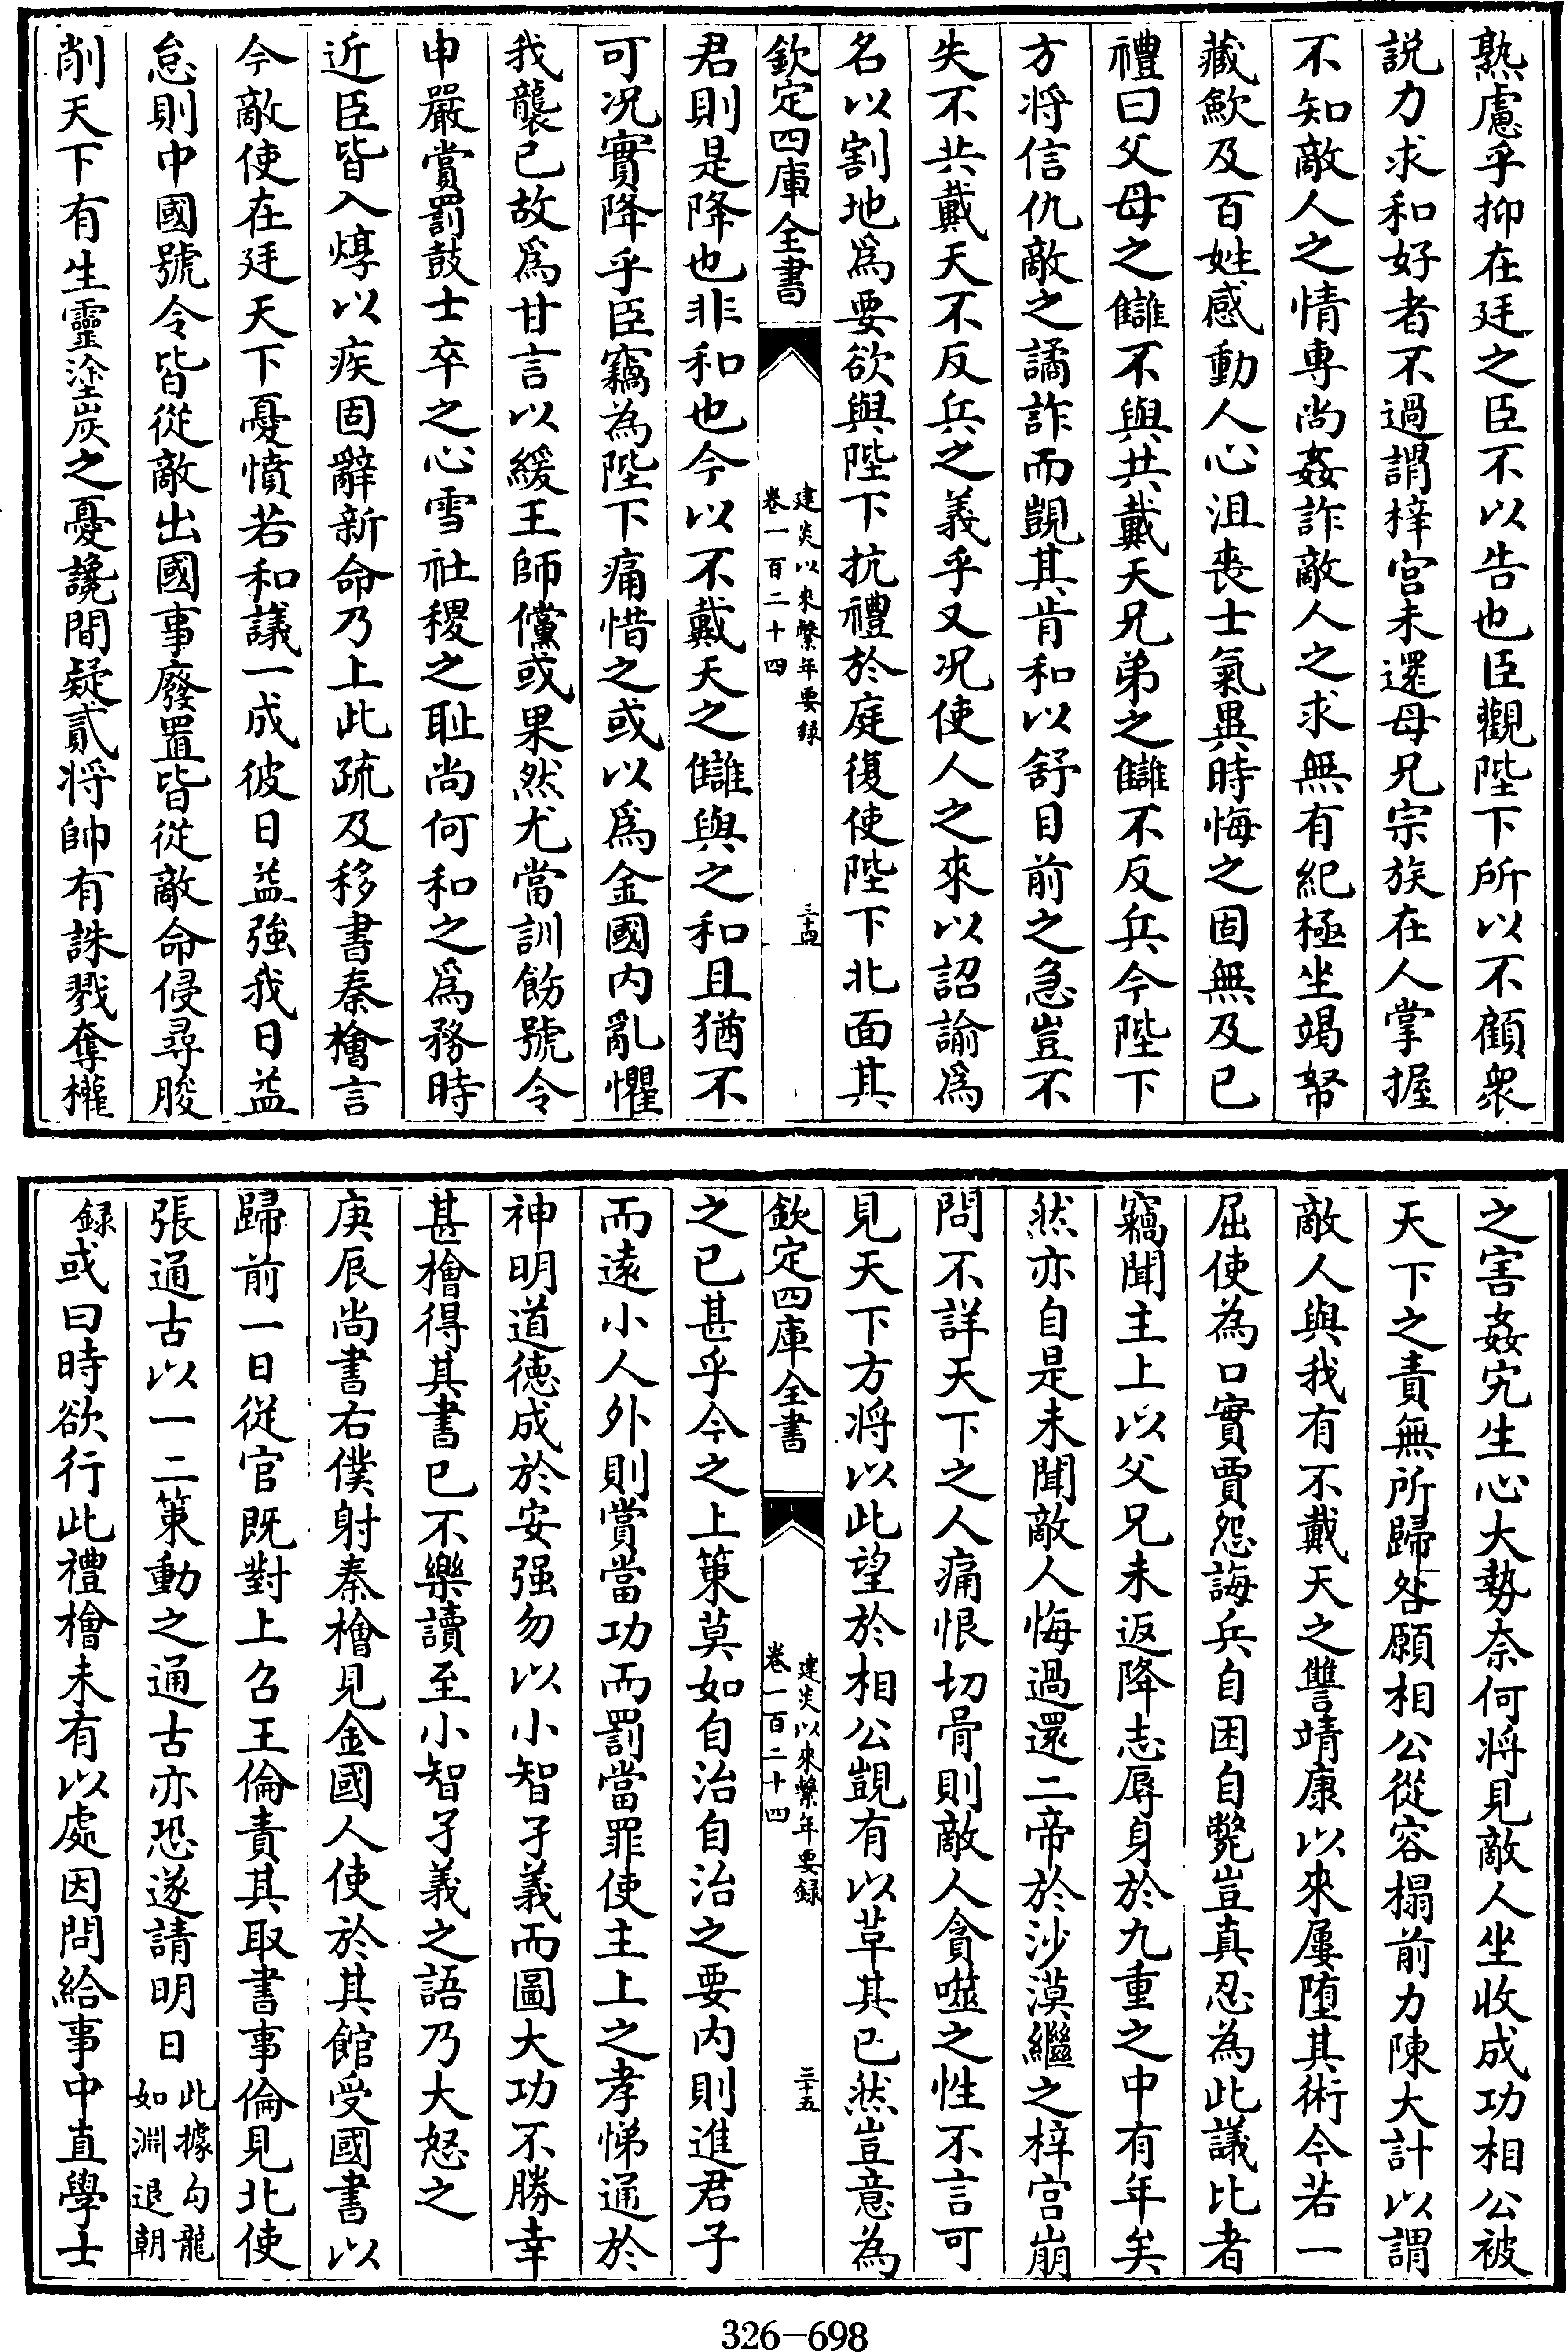 熟慮乎抑在廷之臣不以告也臣觀陛下所以不顧衆
説力求和好者不過謂梓宫未還母兄宗族在人掌握
不知敵人之情專尚姦詐敵人之求無有紀極坐竭帑
藏歛及百姓感動人心沮喪士氣異時悔之固無及已
禮曰父母之讎不與共戴天兄弟之讎不反兵今陛下
方將信仇敵之譎詐而覬其肯和以舒目前之急豈不
失不共戴天不反兵之義乎又况使人之來以詔諭爲
名以割地爲要欲與陛下抗禮於庭復使陛下北面其
欽定四庫全書
建炎以來繫年要録
卷一百二十四
三十四
君則是降也非和也今以不戴天之讎與之和且猶不
可况實降乎臣竊為陛下痛惜之或以爲金國内亂懼
我襲已故爲甘言以緩王師儻或果然尤當訓飭號令
申嚴賞罰鼓士卒之心雪社稷之耻尚何和之爲務時
近臣皆入焞以疾固辭新命乃上此疏及移書秦檜言
今敵使在廷天下憂憤若和議一成彼日益強我日益
怠則中國號令皆從敵出國事廢置皆從敵命侵尋朘
削天下有生靈塗炭之憂讒間疑貳將帥有誅戮奪權
之害姦宄生心大勢奈何將見敵人坐收成功相公被
天下之責無所歸咎願相公從容榻前力陳大計以謂
敵人與我有不戴天之讐靖康以來屢墮其術今若一
屈使為口實賈怨誨兵自困自斃豈真忍為此議比者
竊聞主上以父兄未返降志辱身於九重之中有年矣
然亦自是未聞敵人悔過還二帝於沙漠繼之梓宫崩
問不詳天下之人痛恨切骨則敵人貪噬之性不言可
見天下方將以此望於相公覬有以革其已然豈意為
欽定四庫全書
建炎以來繫年要録
卷一百二十四
三十五
之已甚乎今之上策莫如自治自治之要内則進君子
而遠小人外則賞當功而罰當罪使主上之孝悌通於
神明道德成於安强勿以小智孑義而圖大功不勝幸
甚檜得其書已不樂讀至小智孑義之語乃大怒之
庚辰尚書右僕射秦檜見金國人使於其館受國書以
歸前一日從官既對上召王倫責其取書事倫見北使
張通古以一二策動之通古亦恐遂請明日此據勾龍
如淵退朝
録或曰時欲行此禮檜未有以處因問給事中直學士
326-698